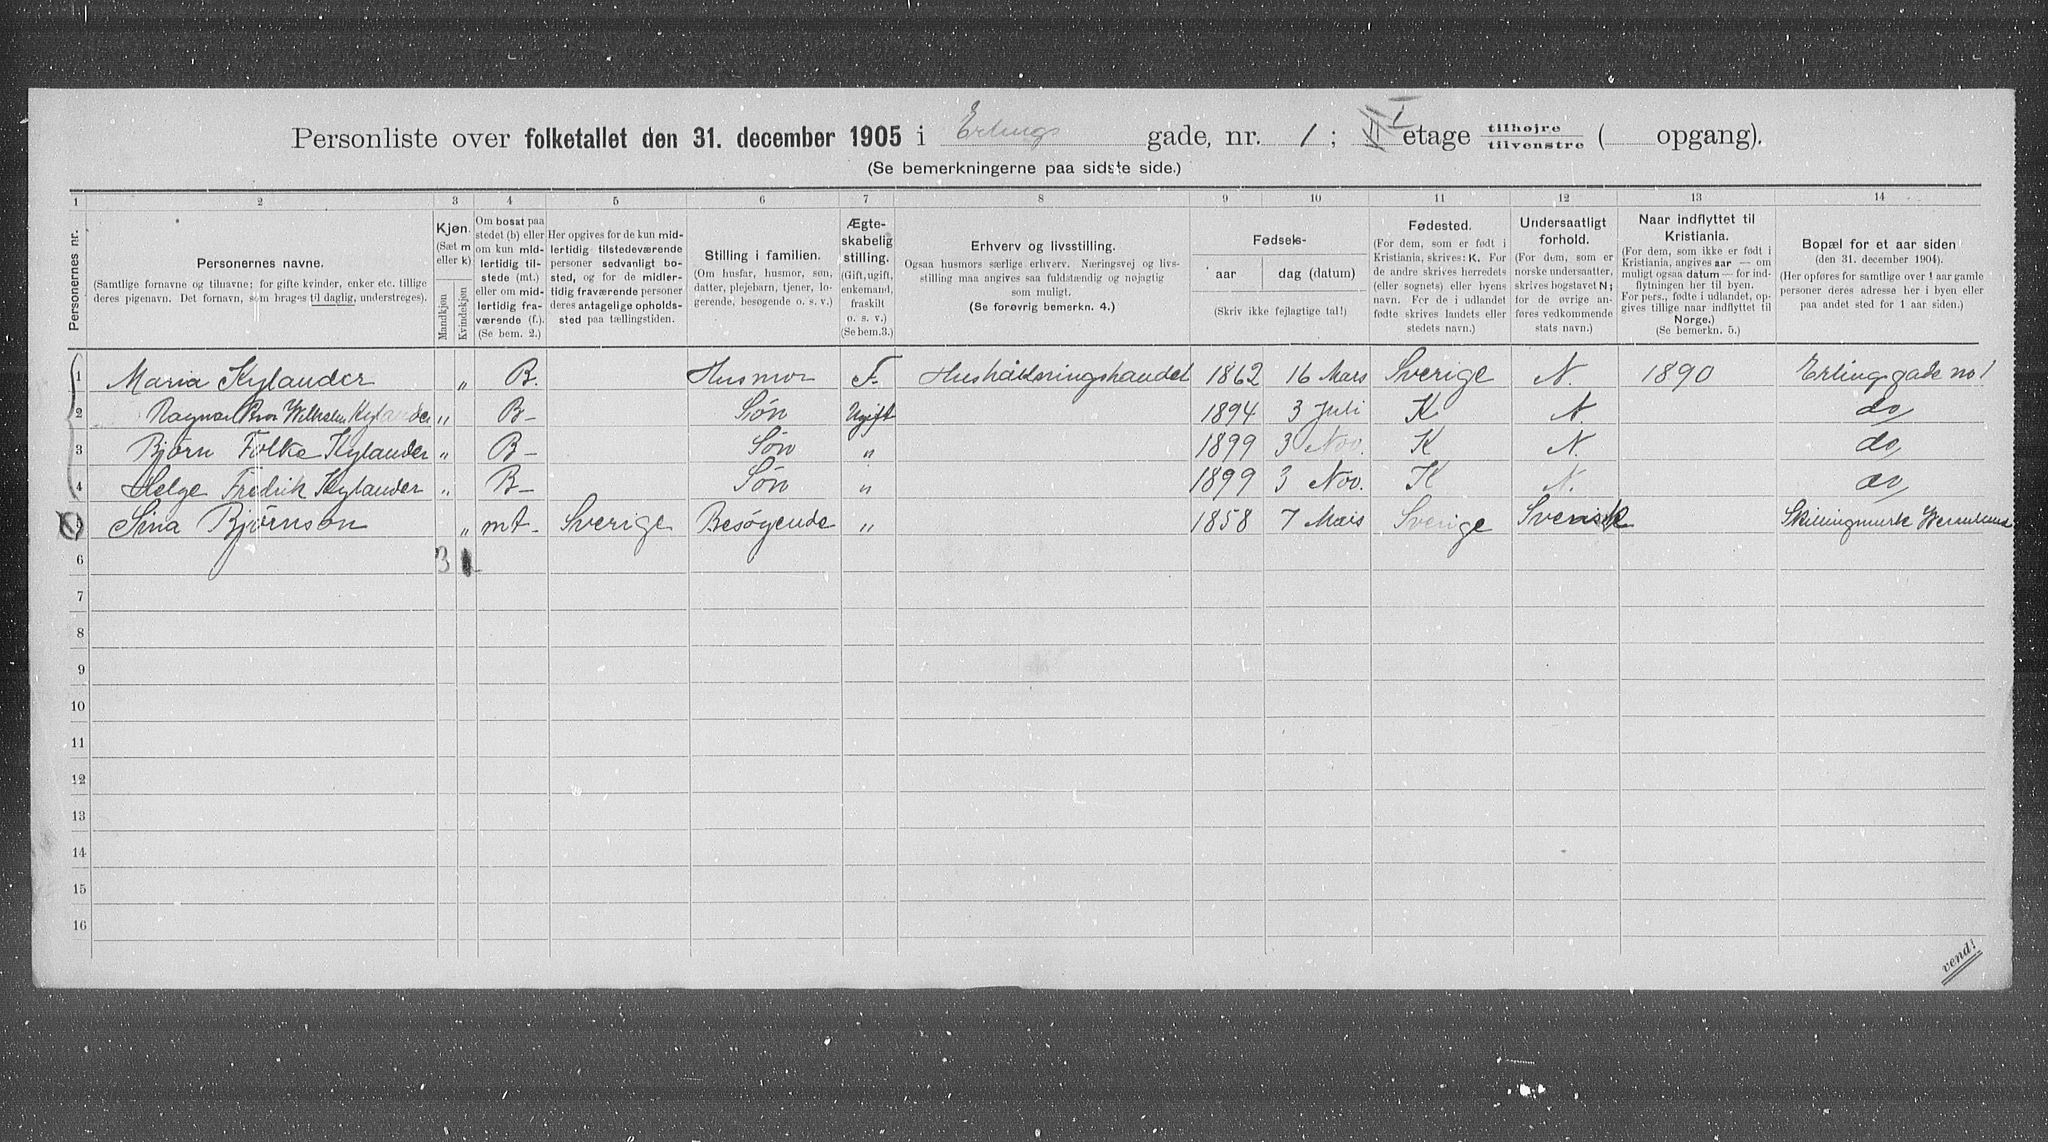 Personliste over folketallet den 31. december 1905 i Erlings gade, nr. 1; I etage tilhøjre tilvenstre ( opgang).
(Se bemerkningerne paa sidste side.)
1 2 3 4 5 6 7 8 9 10 11 12 13 14
Personernes nr.
Personernes navne.
(Samtlige fornavne og tilnavne; for gifte kvinder, enker etc. tillige deres pigenavn. Det fornavn, som bruges til daglig, understreges).
Kjøn.
(Sæt m eller k).
Mandkjøn
Kvindekjøn
Om bosat paa stedet (b) eller om kun midlertidig tilstede (mt.) eller om midlertidig fraværende (f.).
(Se bem. 2.)
Her opgives for de kun midlertidig tilstedeværende personer sedvanligt bosted, og for de midlertidig fraværende personer deres antagelige opholdssted paa tællingstiden.
Stilling i familien.
(Om husfar, husmor, søn, datter, plejebarn, tjener, logerende, besøgende o. s. v.)
Ægteskabelig stilling.
(Gift, ugift, enkemand, fraskilt o. s. v.)
(Se bem. 3.)
Erhverv og livsstilling.
Ogsaa husmors særlige erhverv. Næringsvej og livsstilling maa angives saa fuldstændig og nøjagtig som muligt.
(Se forøvrig bemerkn. 4.)
Fødsels-
aar
dag (datum)
(Skriv ikke fejlagtige tal!)
Fødested.
(For dem, som er født i Kristiania, skrives: K. For de andre skrives herredets (eller sognets) eller byens navn. For de i udlandet fødte skrives landets eller stedets navn.)
Undersaatligt forhold.
(For dem, som er norske undersaatter, skrives bogstavet N; for de øvrige anføres vedkommende stats navn.)
Naar indflyttet til Kristiania.
(For dem, som ikke er født i Kristiania, angives aar — om muligt ogsaa datum — for indflytningen her til byen. For pers., fødte i udlandet, opgives tillige naar indflyttet til Norge.)
(Se bemerkn. 5.)
Bopæl for et aar siden
(den 31. december 1904).
(Her opføres for samtlige over 1 aar gamle personer deres adresse her i byen eller paa andet sted for 1 aar siden.)
1 Maria Kylander „ B. Husmor F. Husholdningshandel 1862 16 Mars Sverige N. 1890 Erlingsgade no 1
2 Ragnar Wilhelm Kylander „ B- Søn Ugift 1894 3 Juli K N. do
3 Bjørn Folke Kylander „ B- Søn „ 1899 3 Nov. K N. do
4 Helge Fredrik Kylander „ B- Søn „ 1899 3 Nov. K N. do
Sina Bjørnson „ mt- Sverige Besøgende „ 1858 7 Mars Sverige Svensk Skillingmark Wermland
6 3
7
8
9
10
11
12
13
14
15
16
vend!